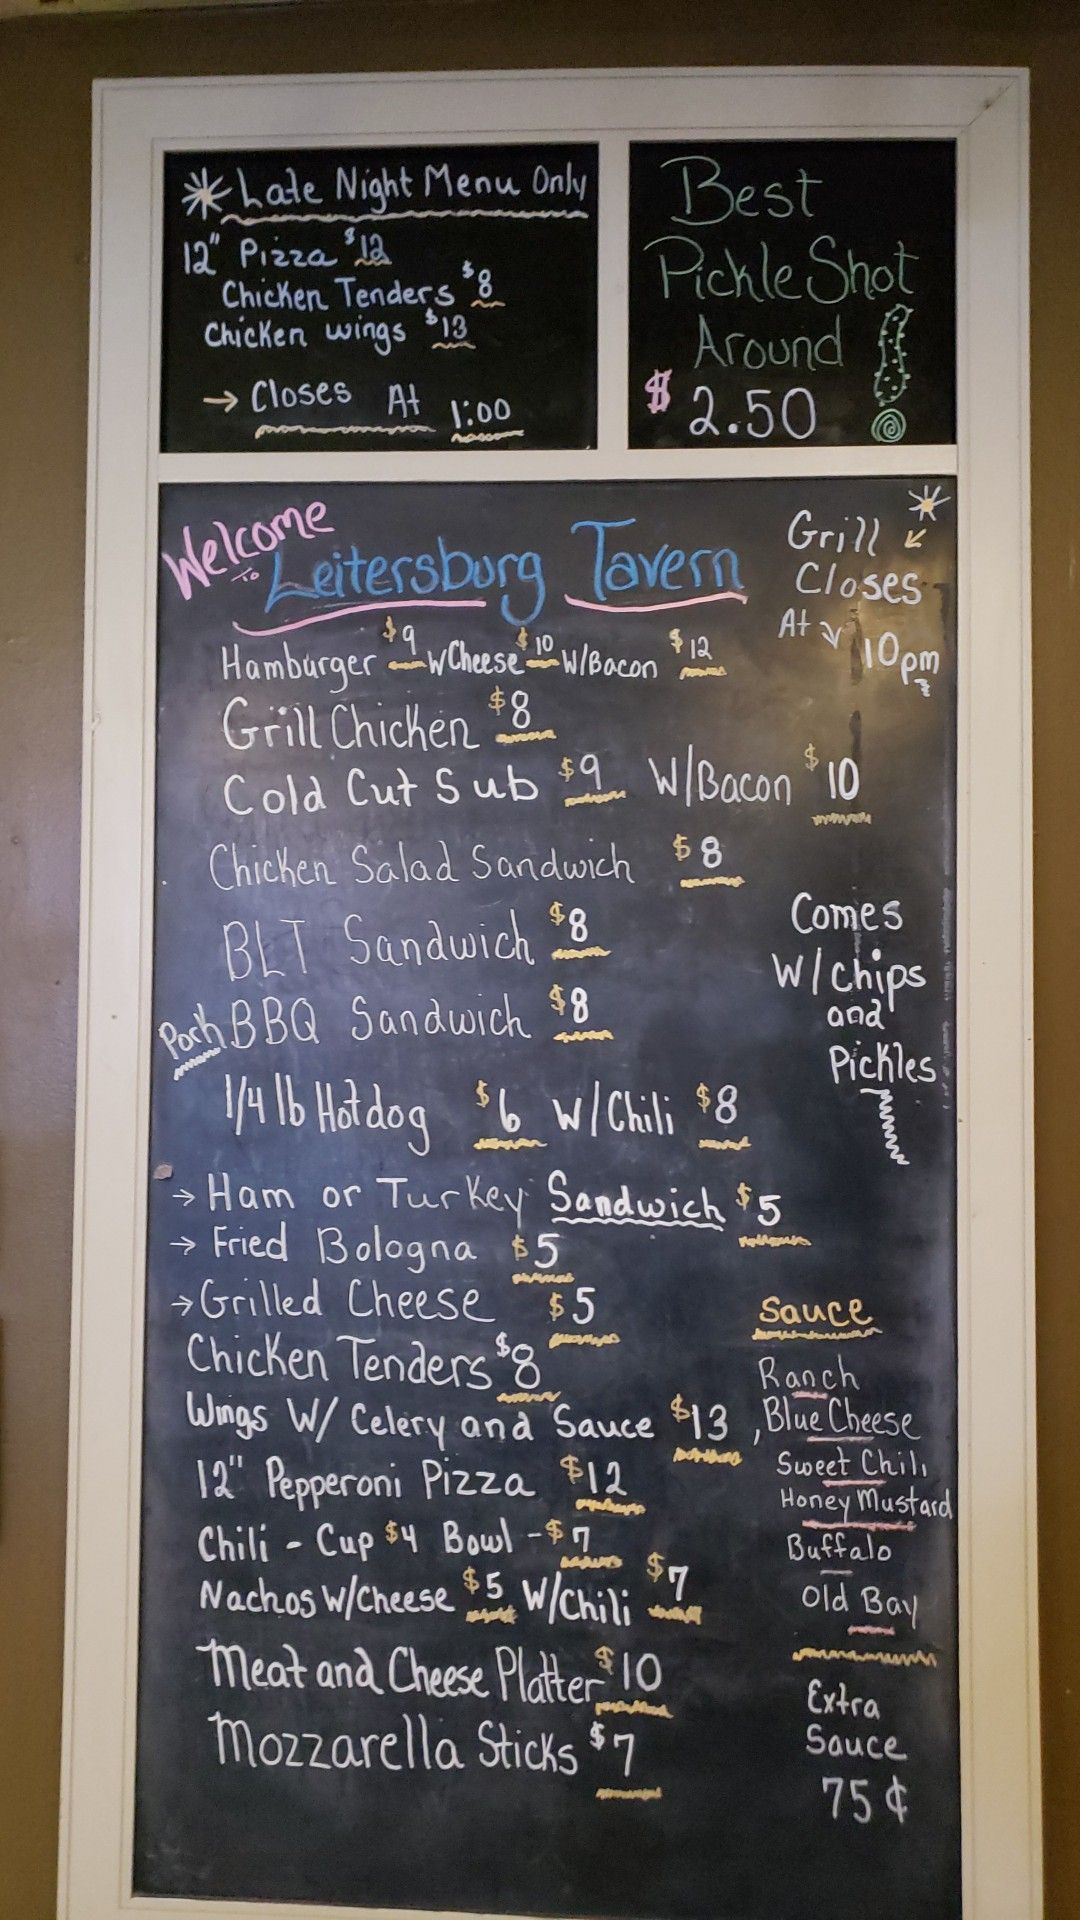 Late Night Menu Only
12" Pizza $12
Chicken Tenders $8
Chicken wings $13
→ Closes At 1:00
Best
Pickle Shot
Around
$ 2.50
Welcome
To Leitersburg Tavern
Grill
Closes
At 10pm
Hamburger $9 w Cheese $10 W/Bacon $12
Grill Chicken $8
Cold Cut Sub $9 W/Bacon $10
Chicken Salad Sandwich $8
BLT Sandwich $8
Pork BBQ Sandwich $8
1/4 lb Hotdog $6 W/Chili $8
Comes
W/chips
and
Pickles
→ Ham or Turkey Sandwich $5
→ Fried Bologna $5
→ Grilled Cheese $5
Chicken Tenders $8
Wings W/ Celery and Sauce $13
12" Pepperoni Pizza $12
Chili - Cup $4 Bowl - $7
Nachos W/Cheese $5 W/Chili $7
Meat and Cheese Platter $10
Mozzarella Sticks $7
Sauce
Ranch
, Blue Cheese
Sweet Chili
Honey Mustard
Buffalo
Old Bay
Extra
Sauce
75¢